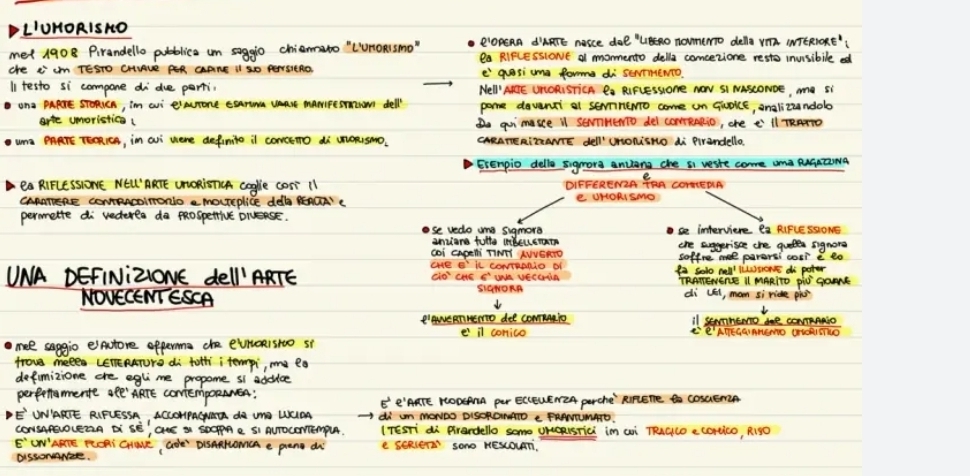 ▶ L'UMORISMO
nel 1908 Pirandello pubblica un saggio chiamato "L'UMORISMO"
che è un TESTO CHIAVE PER CAPIRE IL SUO PENSIERO.
Il testo si compone di due parti:
• una PARTE STORICA, in cui l'AUTORE ESAMINA VARIE MANIFESTAZIONI dell'
arte umoristica;
• una PARTE TEORICA, in cui viene definito il CONCETTO di UMORISMO.
▶ la RIFLESSIONE NELL'ARTE UMORISTICA coglie così il
CARATTERE CONTRADDITTORIO e MOLTEPLICE della REALTÀ e
permette di vederla da PROSPETTIVE DIVERSE.
→
• l'OPERA D'ARTE nasce dal "LIBERO MOVIMENTO della VITA INTERIORE";
la RIFLESSIONE al momento della concezione resta invisibile ed
è quasi una forma di SENTIMENTO.
Nell'ARTE UMORISTICA la RIFLESSIONE NON SI NASCONDE, ma si
pone davanti al SENTIMENTO come un GIUDICE, analizzandolo
Da qui nasce il SENTIMENTO del CONTRARIO, che è il TRATTO
CARATTERIZZANTE dell'UMORISMO di Pirandello.
▶ Esempio della signora anziana che si veste come una RAGAZZINA
e
DIFFERENZA TRA COMMEDIA
e UMORISMO
• se vedo una signora
anziana tutta IMBELLETTATA
coi capelli TINTI AVVERTO
CHE È IL CONTRARIO DI
CIÒ CHE È UNA VECCHIA
SIGNORA
↓
l'AVVERTIMENTO del CONTRARIO
è il COMICO
• se interviene la RIFLESSIONE
che suggerisce che quella signora
soffre nel pararsi così e lo
fa solo nell'ILLUSIONE di poter
TRATTENERE IL MARITO più GIOVANE
di LEI, non si ride più
↓
il SENTIMENTO del CONTRARIO
è l'ATTEGGIAMENTO UMORISTICO
UNA DEFINIZIONE dell'ARTE
NOVECENTESCA
• nel saggio l'AUTORE afferma che l'UMORISMO si
trova nella LETTERATURA di tutti i tempi, ma la
definizione che egli ne propone si addice
perfettamente all'ARTE CONTEMPORANEA:
▶ È UN'ARTE RIFLESSA, ACCOMPAGNATA da una LUCIDA
CONSAPEVOLEZZA DI SÉ, CHE SI SDOPPIA e SI AUTOCONTEMPLA.
È UN'ARTE FUORI CHIAVE, cioè DISARMONICA e piena di
DISSONANZE.
→ È l'ARTE MODERNA per ECCELLENZA perché RIFLETTE la COSCIENZA
di un MONDO DISORDINATO e FRANTUMATO.
I TESTI di Pirandello sono UMORISTICI in cui TRAGICO e COMICO, RISO
e SERIETÀ sono MESCOLATI.